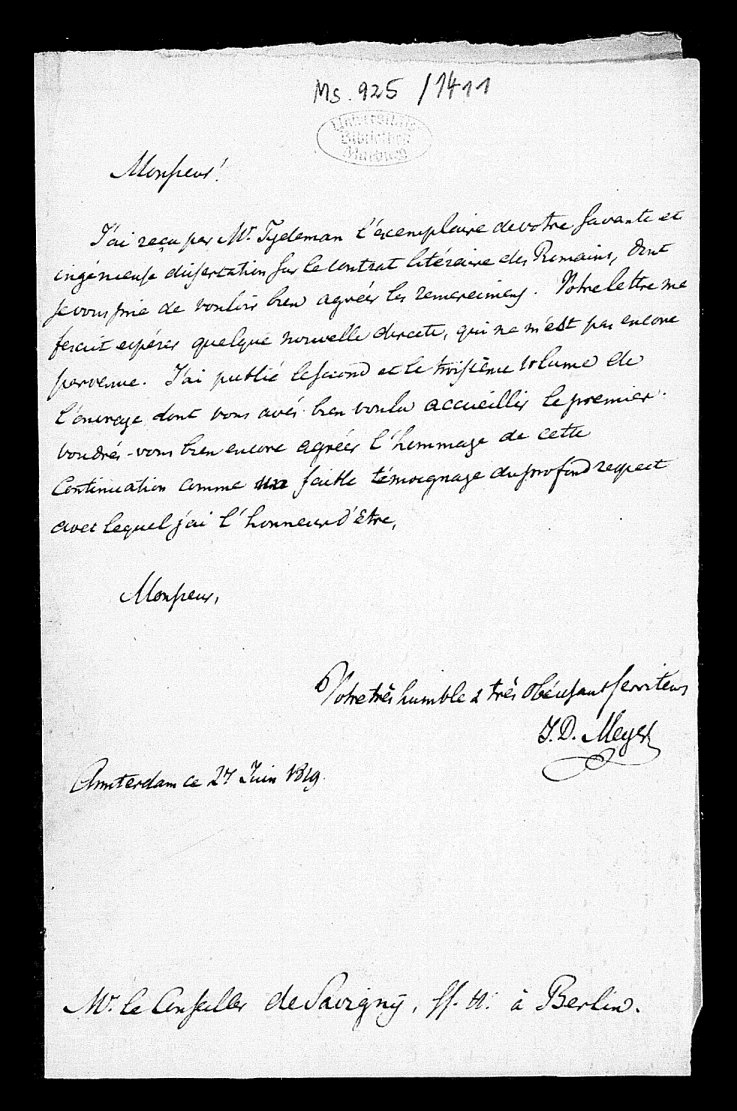 Ms. 925 / 1411
Universitäts
Bibliothek
Marburg
Monsieur!
J'ai reçu par Mr. Tydeman l'exemplaire de votre savante et
ingénieuse dissertation sur le contrat litéraire des Romains, dont
je vous prie de vouloir bien agréér les remercimens. Votre lettre me
fesait espérer quelque nouvelle directe, qui ne m'est pas encore
parvenue. J'ai publié le second et le troisième volume de
l'ouvrage dont vous avés bien voulu accueillir le premier.
voudrés-vous bien encore agréér l'hommage de cette
Continuation comme faible témoignage du profond respect
avec lequel j'ai l'honneur d'être,
Monsieur,
Votre très humble & très Obéissant serviteur
J.D. Meyer
Amsterdam ce 27 Juin 1819.
Mr. le Conseiller de Savigny, à Berlin.